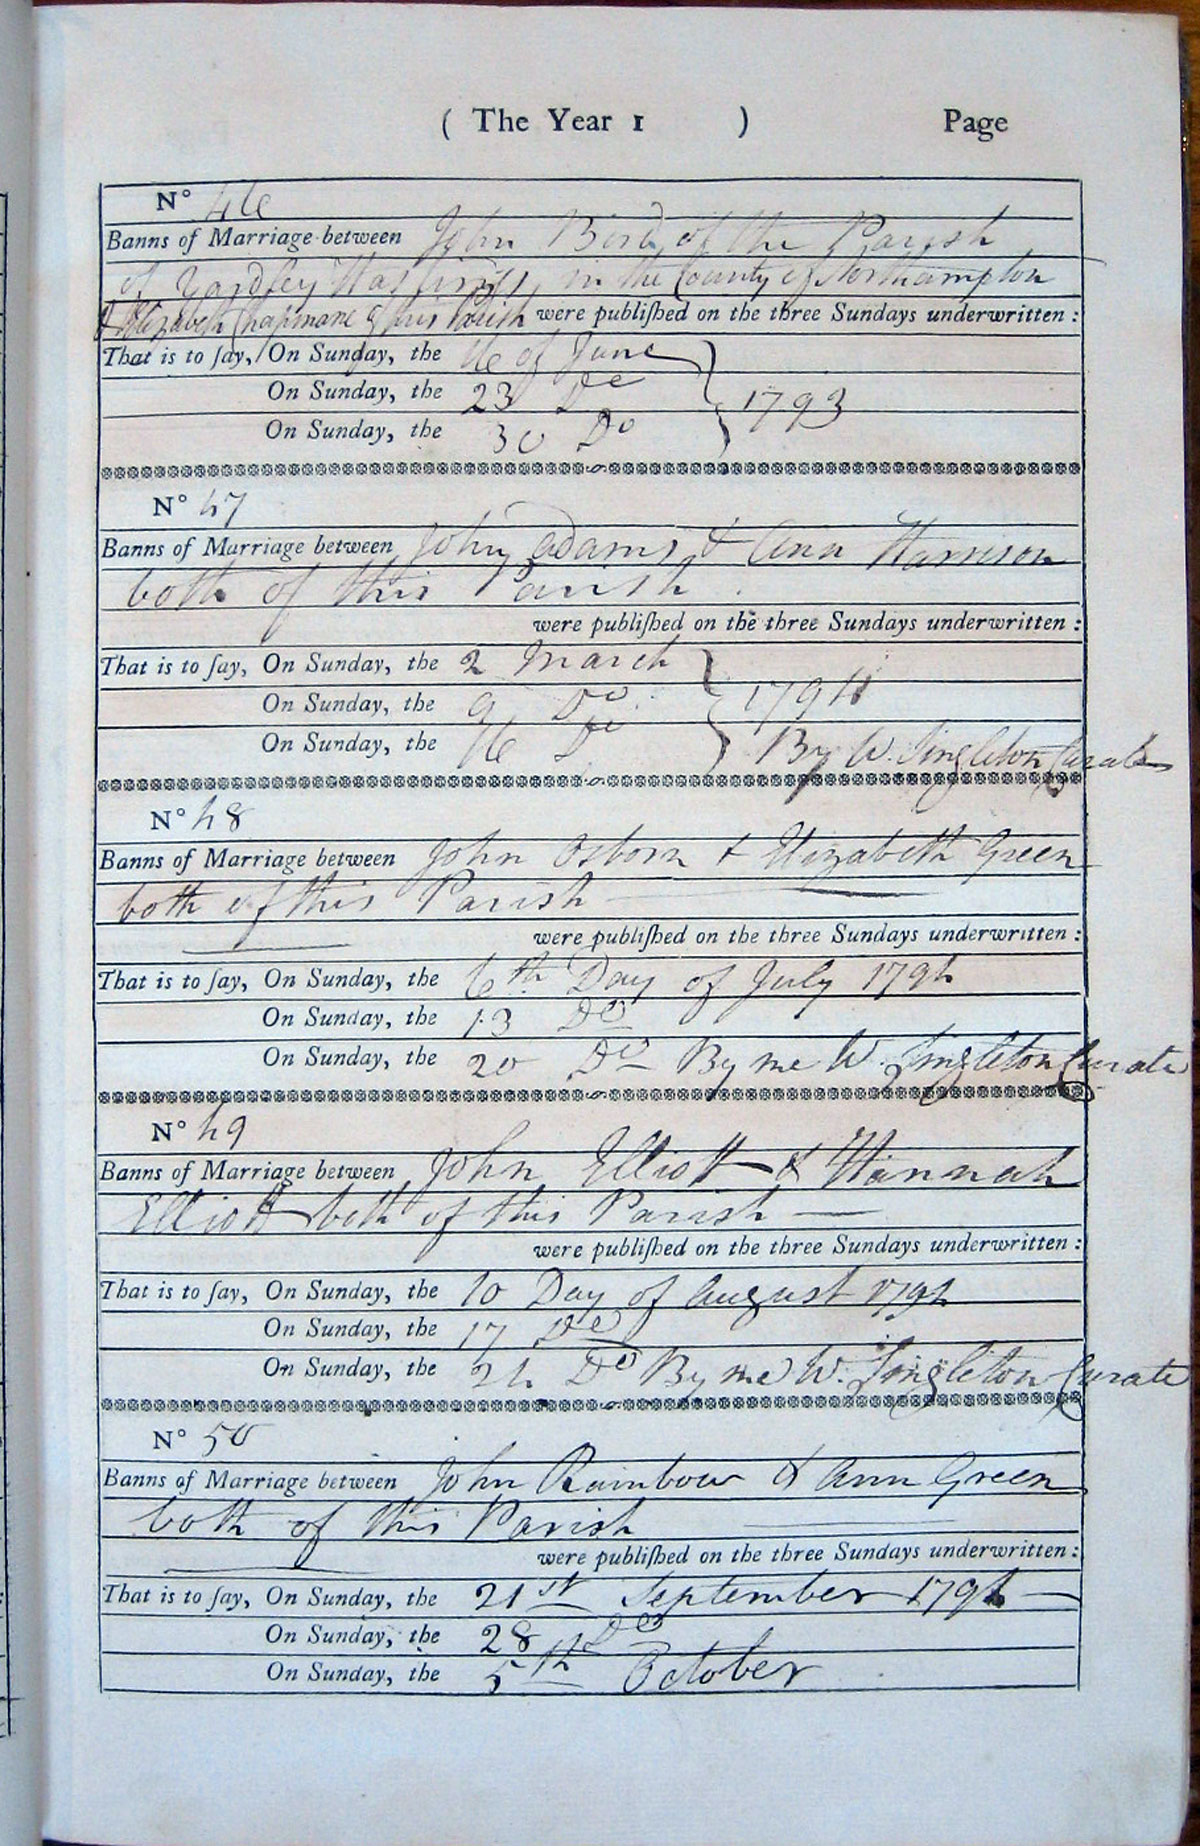 ( The Year 1 ) Page
N° 46
Banns of Marriage between John Bird of the Parish
of Yardley Hastings, in the County of Northampton
& Elizabeth Chapmane of this Parish were publiſhed on the three Sundays underwritten :
That is to ſay, On Sunday, the 16 of June
On Sunday, the 23 Do } 1793
On Sunday, the 30 Do
N° 47
Banns of Marriage between John Adams & Ann Harrison
both of this Parish
were publiſhed on the three Sundays underwritten :
That is to ſay, On Sunday, the 2 March
On Sunday, the 9 Do } 1794
On Sunday, the 16 Do By W. Singleton Curate
N° 48
Banns of Marriage between John Osborn & Elizabeth Green
both of this Parish
were publiſhed on the three Sundays underwritten :
That is to ſay, On Sunday, the 6th Day of July 1794
On Sunday, the 13 Do
On Sunday, the 20 Do By me W. Singleton Curate
N° 49
Banns of Marriage between John Elliott & Hannah
Elliott both of this Parish —
were publiſhed on the three Sundays underwritten :
That is to ſay, On Sunday, the 10 Day of August 1794
On Sunday, the 17 Do
On Sunday, the 24 Do By me W. Singleton Curate
N° 50
Banns of Marriage between John Rainbow & Ann Green
both of this Parish
were publiſhed on the three Sundays underwritten :
That is to ſay, On Sunday, the 21st September 1794 —
On Sunday, the 28 Do
On Sunday, the 5th October